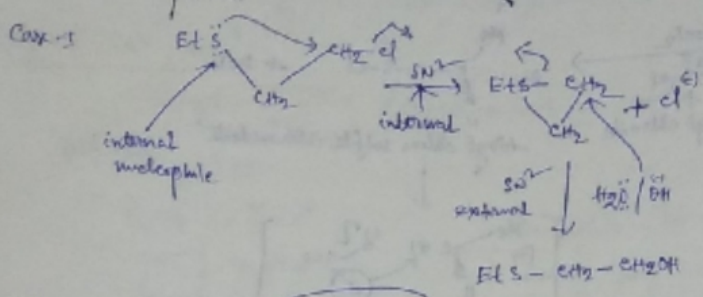 Case-I
Et S̈ CH2 Cl
CH2
internal nucleophile
SN2
internal
EtS – CH2 + Cl⊖
CH2
SN2
external
H2Ö / ÖH
Et S – CH2 – CH2OH